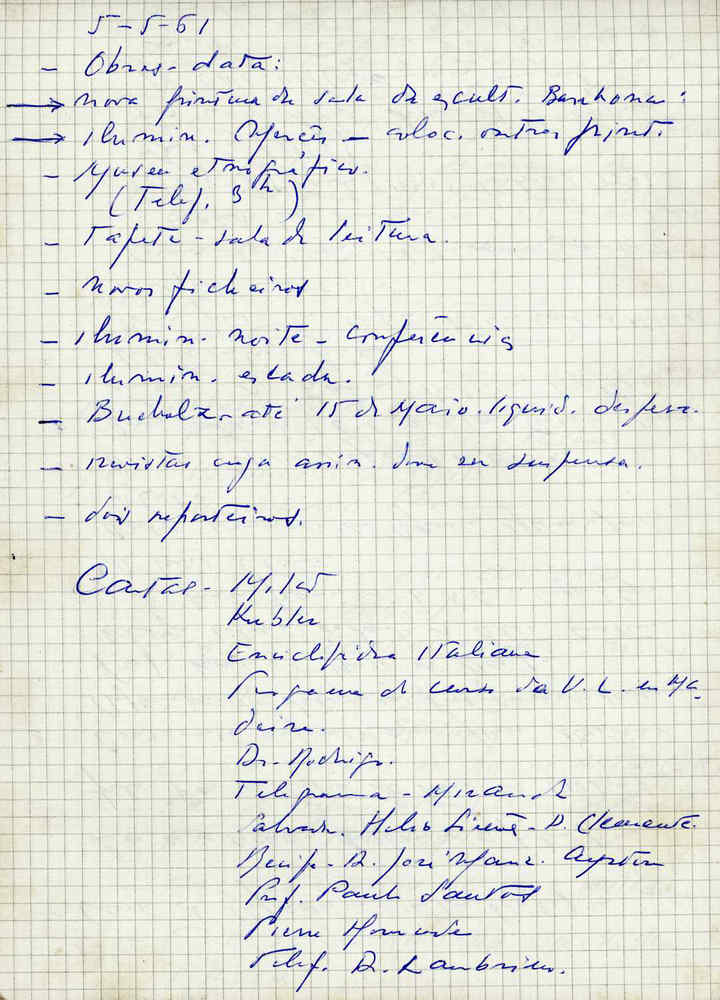 5-5-61
- Obras - data:
→ nova pintura da sala de escult. Barbosa:
→ ilumin. Mercês - coloc. outros
- Museu etnográfico.
(Telef. 3h)
- Tapete - sala de leitura.
- novos ficheiros
- ilumin. noite - conferências
- ilumin. escada.
- Bucholz - até 15 de Maio. liquid. despesa.
- revistas cuja assin. deve ser suspensa.
- dois reposteiros.
Cartas -
Kubler
Enciclopédia Italiana
Programa do curso da U. L. em Ma-
deira.
Dr. Rodrigo.
Telegrama - Miranda
Salvador. Helio Simões - D. Clemente.
Recife - D. José Ayrton
Prof. Paulo Santos
Pierre
Telef. D.